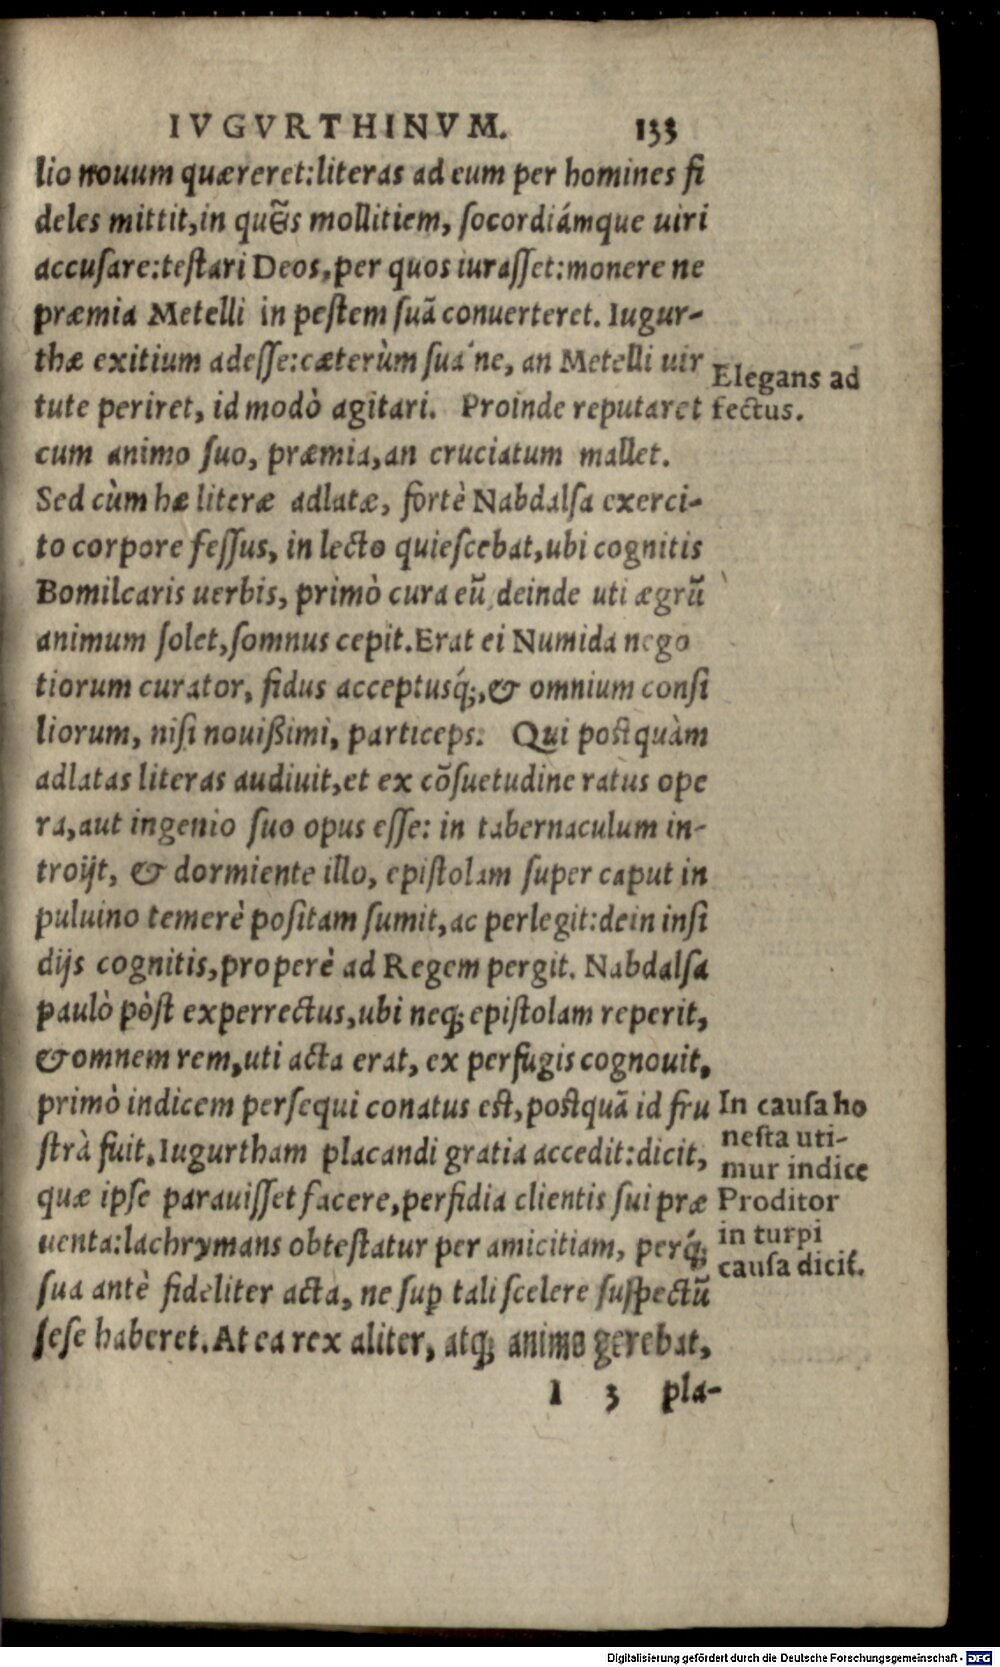 IVGVRTHINVM. 133
lio nouum quæreret:literas ad eum per homines fi
deles mittit,in quẽis mollitiem, socordiámque uiri
accusare:testari Deos,per quos iurasset:monere ne
præmia Metelli in pestem suã conuerteret. Iugur-
thæ exitium adesse:cæterùm sua´ne, an Metelli uir
tute periret, id modò agitari. Proinde reputaret
cum animo suo, præmia,an cruciatum mallet.
Sed cùm hæ literæ adlatæ, fortè Nabdalsa exerci-
to corpore fessus, in lecto quiescebat,ubi cognitis
Bomilcaris uerbis, primò cura eũ,deinde uti ægrũ
animum solet,somnus cepit.Erat ei Numida nego
tiorum curator, fidus acceptusq́;,& omnium consi
liorum, nisi nouißimi, particeps. Qui postquàm
adlatas literas audiuit,et ex cõsuetudine ratus ope
ra,aut ingenio suo opus esse: in tabernaculum in-
troijt, & dormiente illo, epistolam super caput in
puluino temerè positam sumit,ac perlegit:dein insi
dijs cognitis,properè ad Regem pergit. Nabdalsa
paulò pòst experrectus,ubi neq; epistolam reperit,
& omnem rem,uti acta erat, ex perfugis cognouit,
primò indicem persequi conatus est,postquã id fru
strà fuit.Iugurtham placandi gratia accedit:dicit,
quæ ipse parauisset facere,perfidia clientis sui præ
uenta:lachrymans obtestatur per amicitiam, perq́;
sua antè fideliter acta, ne sup̱ tali scelere suspectũ
sese haberet.At ea rex aliter, atq; animo gerebat,
l 3 pla-
Elegans ad
fectus.
In causa ho
nesta uti-
mur indice
Proditor
in turpi
causa dicit̃.
Digitalisierung gefördert durch die Deutsche Forschungsgemeinschaft - DFG